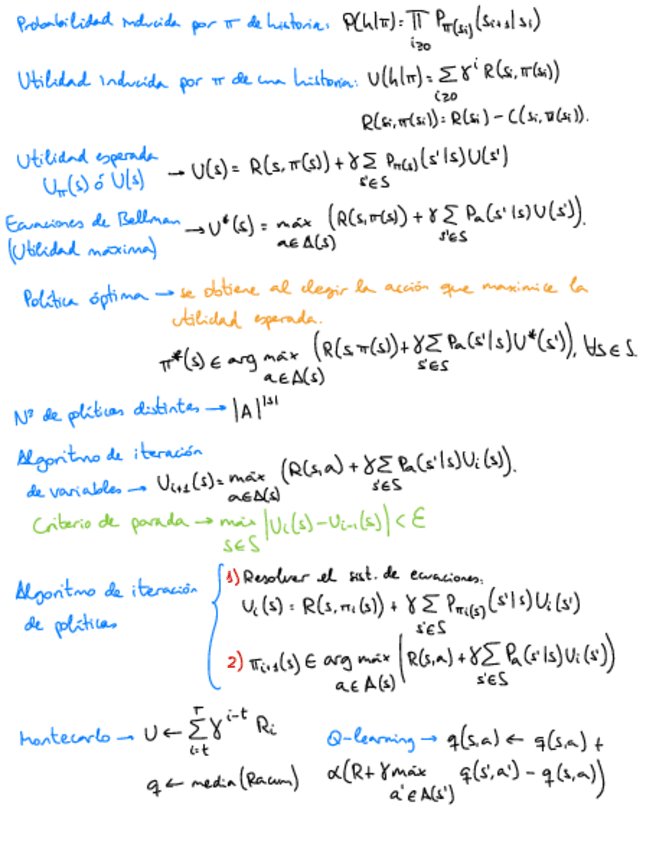 Probabilidad inducida por π de historia: P(h|π) = ∏_{i≥0} P_{π(s_i)}(s_{i+1}|s_i)
Utilidad inducida por π de una historia: U(h|π) = ∑_{i≥0} γ^i R(s_i, π(s_i))
R(s_i, π(s_i)) = R(s_i) − C(s_i, π(s_i)).
Utilidad esperada
U_π(s) ó U(s) → U(s) = R(s, π(s)) + γ ∑_{s'∈S} P_{π(s)}(s'|s) U(s')
Ecuaciones de Bellman → U*(s) = máx_{a∈A(s)} (R(s, π(s)) + γ ∑_{s'∈S} P_a(s'|s) U(s')).
(Utilidad máxima)
Política óptima → se obtiene al elegir la acción que maximice la
utilidad esperada.
π*(s) ∈ arg máx_{a∈A(s)} (R(s, π(s)) + γ ∑_{s'∈S} P_a(s'|s) U*(s')), ∀s∈S.
Nº de políticas distintas → |A|^{|S|}
Algoritmo de iteración
de variables → U_{i+1}(s) = máx_{a∈A(s)} (R(s,a) + γ ∑_{s'∈S} P_a(s'|s) U_i(s)).
Criterio de parada → máx_{s∈S} |U_i(s) − U_{i−1}(s)| < ε
Algoritmo de iteración
de políticas
1) Resolver el sist. de ecuaciones:
U_i(s) = R(s, π_i(s)) + γ ∑_{s'∈S} P_{π_i(s)}(s'|s) U_i(s')
2) π_{i+1}(s) ∈ arg máx_{a∈A(s)} (R(s,a) + γ ∑_{s'∈S} P_a(s'|s) U_i(s'))
Montecarlo → U ← ∑_{i=t}^{T} γ^{i−t} R_i
q ← media(Racum)
Q-learning → q(s,a) ← q(s,a) +
α(R + γ máx_{a'∈A(s')} q(s',a') − q(s,a))